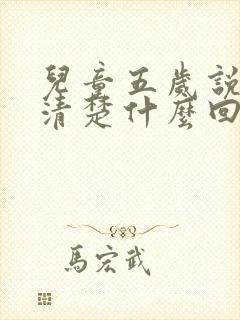 兒童五歲說
清楚什麼回
馬宏武